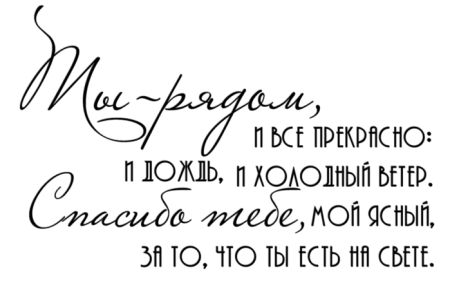 Ты-рядом,
И ВСЕ ПРЕКРАСНО:
И ДОЖДЬ, И ХОЛОДНЫЙ ВЕТЕР.
Спасибо тебе, МОЙ ЯСНЫЙ,
ЗА ТО, ЧТО ТЫ ЕСТЬ НА СВЕТЕ.